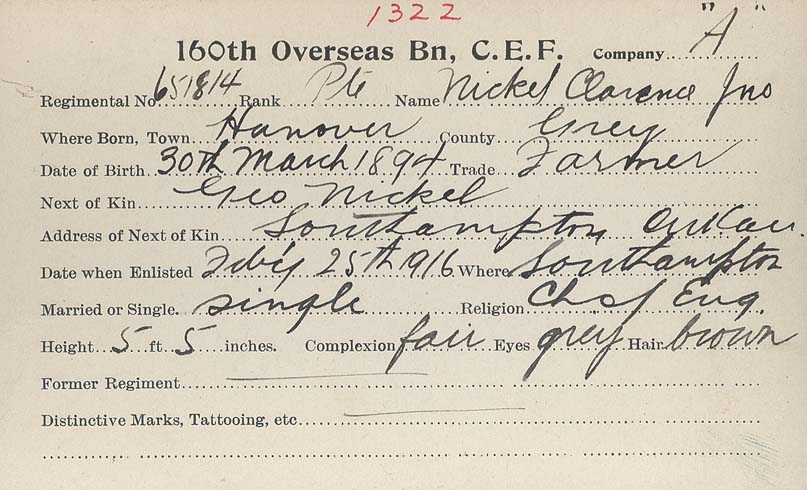 1322
160th Overseas Bn, C.E.F. Company "A"
Regimental No 651814 Rank Pte Name Nickel Clarence Jno
Where Born, Town Hanover County Grey
Date of Birth 30th March 1894 Trade Farmer
Next of Kin Geo Nickel
Address of Next of Kin Southampton Ont Can.
Date when Enlisted Feb'y 25th 1916 Where Southampton
Married or Single. single Religion Ch of Eng.
Height 5 ft 5 inches. Complexion fair Eyes grey Hair brown
Former Regiment
Distinctive Marks, Tattooing, etc